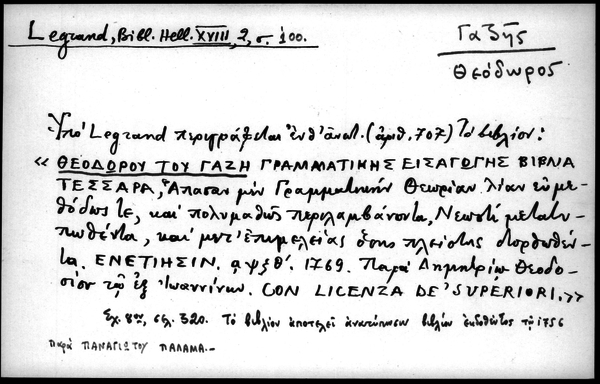 Legrand, Bibl. Hell. XVIII, 2, σ. 100.
Γαζῆς
Θεόδωρος
Ὑπό Legrand περιγράφεται ἐνθ' ἀνωτ. (ἀριθ. 707) τό βιβλίον:
« ΘΕΟΔΩΡΟΥ ΤΟΥ ΓΑΖΗ ΓΡΑΜΜΑΤΙΚΗΣ ΕΙΣΑΓΩΓΗΣ ΒΙΒΛΙΑ
ΤΕΣΣΑΡΑ, Ἅπασαν μὲν Γραμματικὴν Θεωρίαν λίαν εὐμε-
θόδως τε, καὶ πολυμαθῶς περιλαμβάνοντα, Νεωστὶ μετατυ-
πωθέντα, καὶ μετ' ἐπιμελείας ὅτι πλείστης διορθωθέν-
τα. ΕΝΕΤΙΗΣΙΝ. αψξθ'. 1769. Παρὰ Δημητρίῳ Θεοδο-
σίου τῷ ἐξ Ἰωαννίνων. CON LICENZA DE' SUPERIORI. »
Σχ. 8ον, σελ. 320. Τό βιβλίον ἀποτελεῖ ἀνατύπωσιν βιβλίου ἐκδοθέντος τῷ 1756
παρά ΠΑΝΑΓΙΩΤΟΥ ΠΑΛΑΜΑ.-